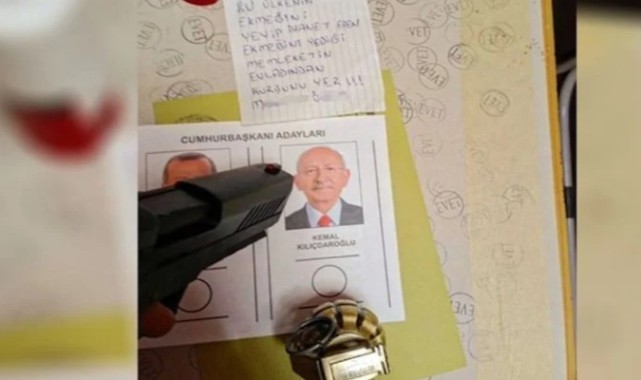 BU ÜLKENİN
EKMEĞİNİ
YEYİP İHANET EDEN
EKMEĞİNİ YEDİĞİ
MEMLEKETİN
EVLADINDAN
KURŞUNU YER !!!
CUMHURBAŞKANI ADAYLARI
KEMAL
KILIÇDAROĞLU
EVET
EVET
EVET
EVET
EVET
EVET
EVET